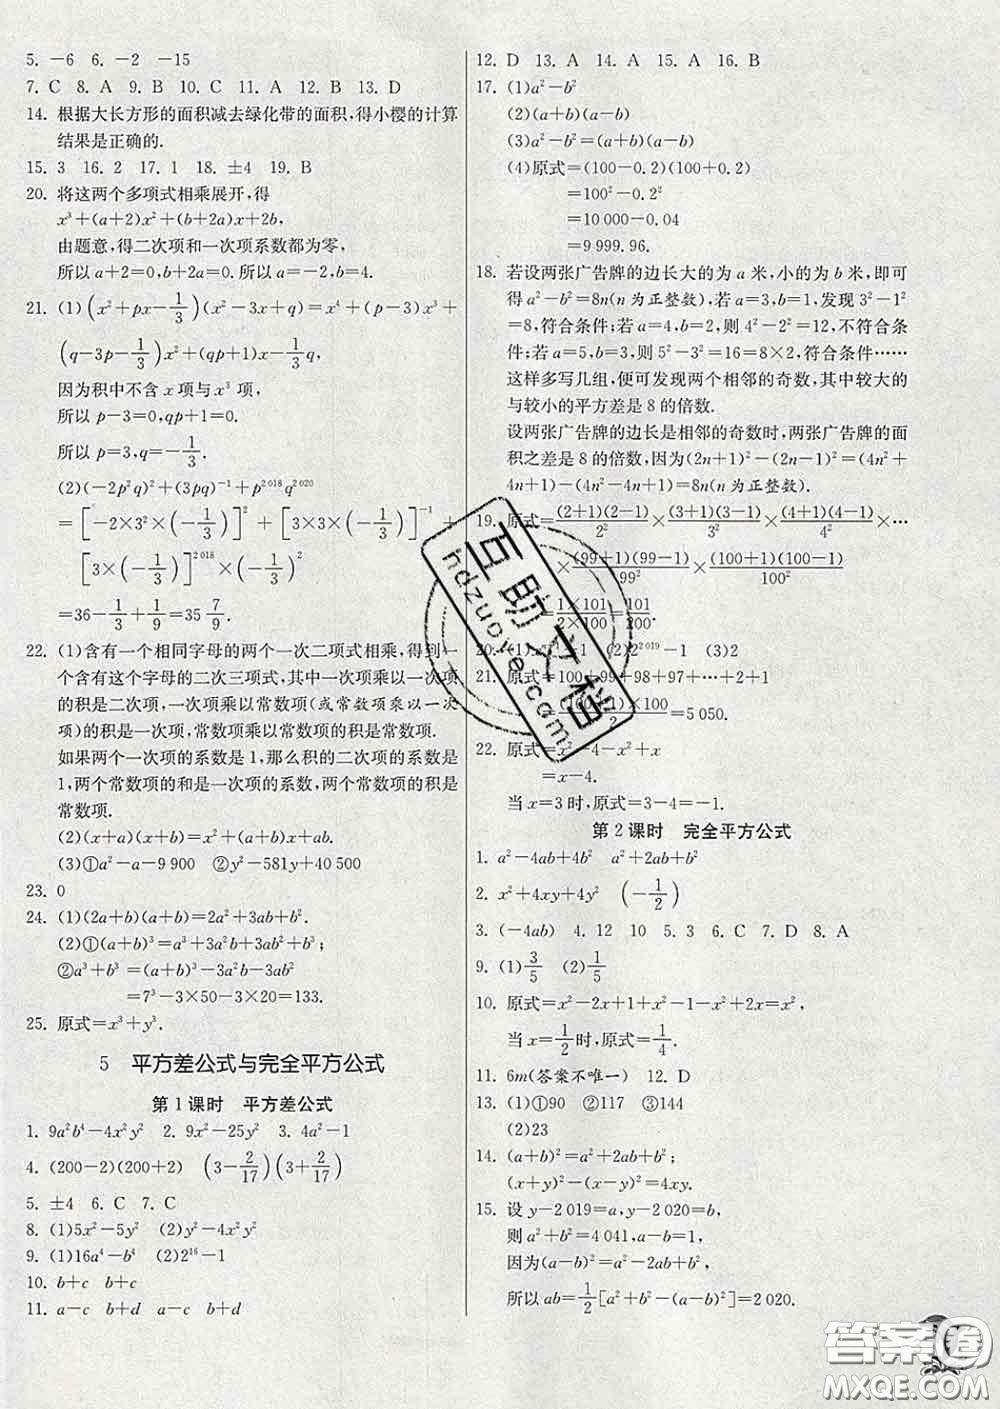 5. －6　6. －2　－15
7. C　8. A　9. B　10. C　11. A　12. B　13. D
14. 根据大长方形的面积减去绿化带的面积,得小樱的计算
结果是正确的.
15. 3　16. 2　17. 1　18. ±4　19. B
20. 将这两个多项式相乘展开,得
x³＋(a＋2)x²＋(b＋2a)x＋2b,
由题意,得二次项和一次项系数都为零,
所以 a＋2＝0,b＋2a＝0.所以 a＝－2,b＝4.
21. (1)(x²＋px－1/3)(x²－3x＋q)＝x⁴＋(p－3)x³＋
(q－3p－1/3)x²＋(qp＋1)x－1/3q,
因为积中不含 x 项与 x³ 项,
所以 p－3＝0,qp＋1＝0.
所以 p＝3,q＝－1/3.
(2)(－2p²q)²＋(3pq)⁻¹＋p²⁰¹⁸q²⁰²⁰
＝[－2×3²×(－1/3)]²＋[3×3×(－1/3)]⁻¹＋
[3×(－1/3)]²⁰¹⁸×(－1/3)²
＝36－1/3＋1/9＝35 7/9.
22. (1)含有一个相同字母的两个一次二项式相乘,得到一
个含有这个字母的二次三项式,其中一次项乘以一次项
的积是二次项,一次项乘以常数项(或常数项乘以一次
项)的积是一次项,常数项乘以常数项的积是常数项.
如果两个一次项的系数是1,那么积的二次项的系数是
1,两个常数项的和是一次项的系数,两个常数项的积是
常数项.
(2)(x＋a)(x＋b)＝x²＋(a＋b)x＋ab.
(3)①a²－a－9 900　②y²－581y＋40 500
23. 0
24. (1)(2a＋b)(a＋b)＝2a²＋3ab＋b².
(2)①(a＋b)³＝a³＋3a²b＋3ab²＋b³;
②a³＋b³＝(a＋b)³－3a²b－3ab²
＝7³－3×50－3×20＝133.
25. 原式＝x³＋y³.
5　平方差公式与完全平方公式
第1课时　平方差公式
1. 9a²b⁴－4x²y²　2. 9x²－25y²　3. 4a²－1
4. (200－2)(200＋2)　(3－2/17)(3＋2/17)
5. ±4　6. C　7. C
8. (1)5x²－5y²　(2)y²－4x²y²
9. (1)16a⁴－b⁴　(2)2¹⁶－1
10. b＋c　b＋c
11. a－c　b＋d　a－c　b＋d
12. D　13. A　14. A　15. A　16. B
17. (1)a²－b²
(2)(a＋b)(a－b)
(3)a²－b²＝(a＋b)(a－b)
(4)原式＝(100－0.2)(100＋0.2)
＝100²－0.2²
＝10 000－0.04
＝9 999.96.
18. 若设两张广告牌的边长大的为 a 米,小的为 b 米,即可
得 a²－b²＝8n(n 为正整数),若 a＝3,b＝1,发现 3²－1²
＝8,符合条件;若 a＝4,b＝2,则 4²－2²＝12,不符合条
件;若 a＝5,b＝3,则 5²－3²＝16＝8×2,符合条件……
这样多写几组,便可发现两个相邻的奇数,其中较大的
与较小的平方差是8的倍数.
设两张广告牌的边长是相邻的奇数时,两张广告牌的面
积之差是8的倍数,因为(2n＋1)²－(2n－1)²＝(4n²＋
4n＋1)－(4n²－4n＋1)＝8n(n 为正整数).
19. 原式＝(2＋1)(2－1)/2²×(3＋1)(3－1)/3²×(4＋1)(4－1)/4²×
…×(99＋1)(99－1)/99²×(100＋1)(100－1)/100²
＝1/2×101/100＝101/200.
(2)2²⁰¹⁹－1　(3)2
21. 原式＝100＋99＋98＋97＋…＋2＋1
(100＋1)×100/2＝5 050.
22. 原式＝x²－4－x²＋x
＝x－4.
当 x＝3 时,原式＝3－4＝－1.
第2课时　完全平方公式
1. a²－4ab＋4b²　a²＋2ab＋b²
2. x²＋4xy＋4y²　(－1/2)
3. (－4ab)　4. 12　10　5. 3　6. C　7. D　8. A
9. (1)3/5　(2)1/5
10. 原式＝x²－2x＋1＋x²－1－x²＋2x＝x²,
当 x＝1/2时,原式＝1/4.
11. 6m(答案不唯一)　12. D
13. (1)①90　②117　③144
(2)23
14. (a＋b)²＝a²＋2ab＋b²;
(x＋y)²－(x－y)²＝4xy.
15. 设 y－2 019＝a,y－2 020＝b,
则 a²＋b²＝4 041,a－b＝1,
因为(a－b)²＝a²－2ab＋b²,
所以 ab＝1/2[a²＋b²－(a－b)²]＝2 020.
互助文档
hdzuoye.com
答案圈
MXQE.COM